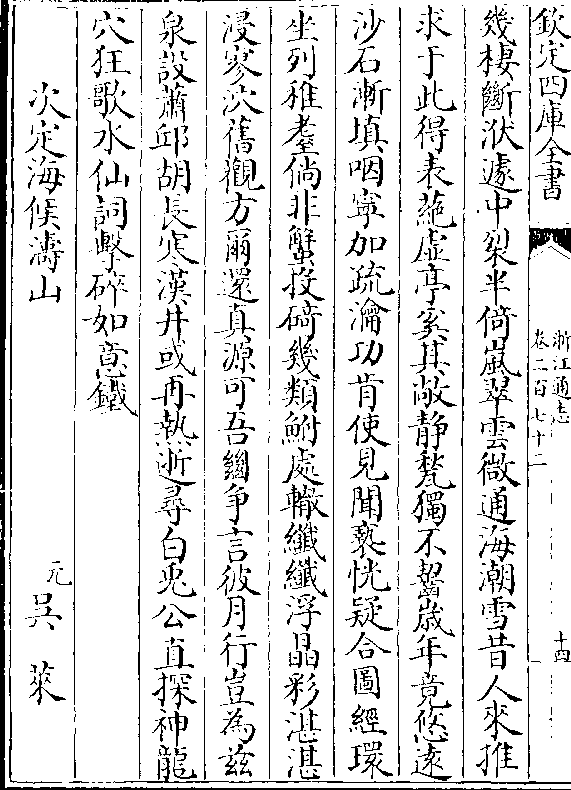 欽定四庫全書
浙江通志
卷二百七十二
十四
幾棲斷洑遽中裂半倚嵐翠雲微通海潮雪昔人來推
求于此得表蕝虛亭奚其敞靜甃獨不齧歲年竟悠遠
沙石漸填咽寧加疏瀹功肯使見聞褻恍疑合圖經環
坐列稚耋倘非蟹投碕幾類鮒處轍纖纖浮晶彩湛湛
浸寥泬舊觀方爾還真源可吾齧争言彼月行豈為兹
泉設蕭邱胡長寒漢井或再熱逝尋白兎公直探神龍
穴狂歌水仙詞擊碎如意鐵
次定海候濤山
元
吳萊